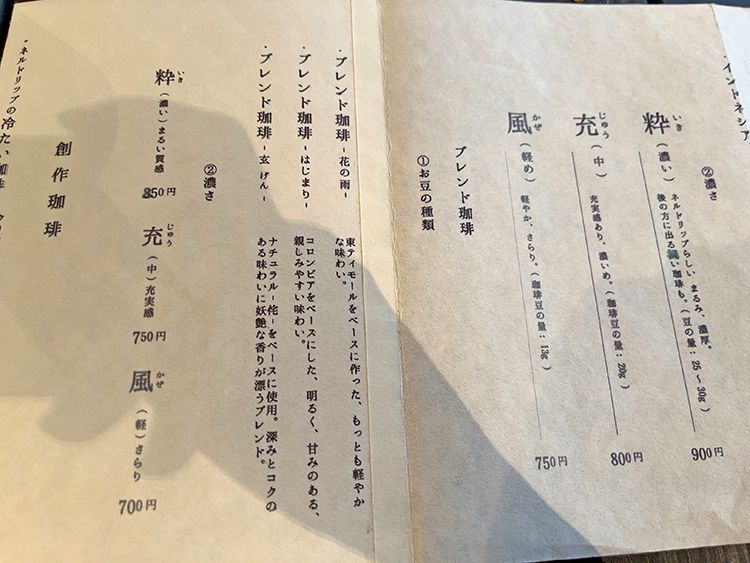 インドネシア
②濃さ
粋 いき （濃い） ネルドリップらしい まるみ、濃厚。
後の方に出る 珈琲も。（豆の量：25〜30g） 900円
充 じゅう （中） 充実感あり、濃いめ。（珈琲豆の量：20g） 800円
風 かぜ （軽め） 軽やか、さらり。（珈琲豆の量：13g） 750円
ブレンド珈琲
①お豆の種類
・ブレンド珈琲 -花の雨- 東ティモールをベースに作った、もっとも軽やか
な味わい。
・ブレンド珈琲 -はじまり- コロンビアをベースにした、明るく、甘みのある、
親しみやすい味わい。
・ブレンド珈琲 -玄 げん- ナチュラル-侘-をベースに使用。深みとコクの
ある味わいに妖艶な香りが漂うブレンド。
②濃さ
粋 いき （濃い）まるい質感 850円 充 じゅう （中）充実感 750円 風 かぜ （軽）さらり 700円
創作珈琲
・ネルドリップの冷たい珈琲